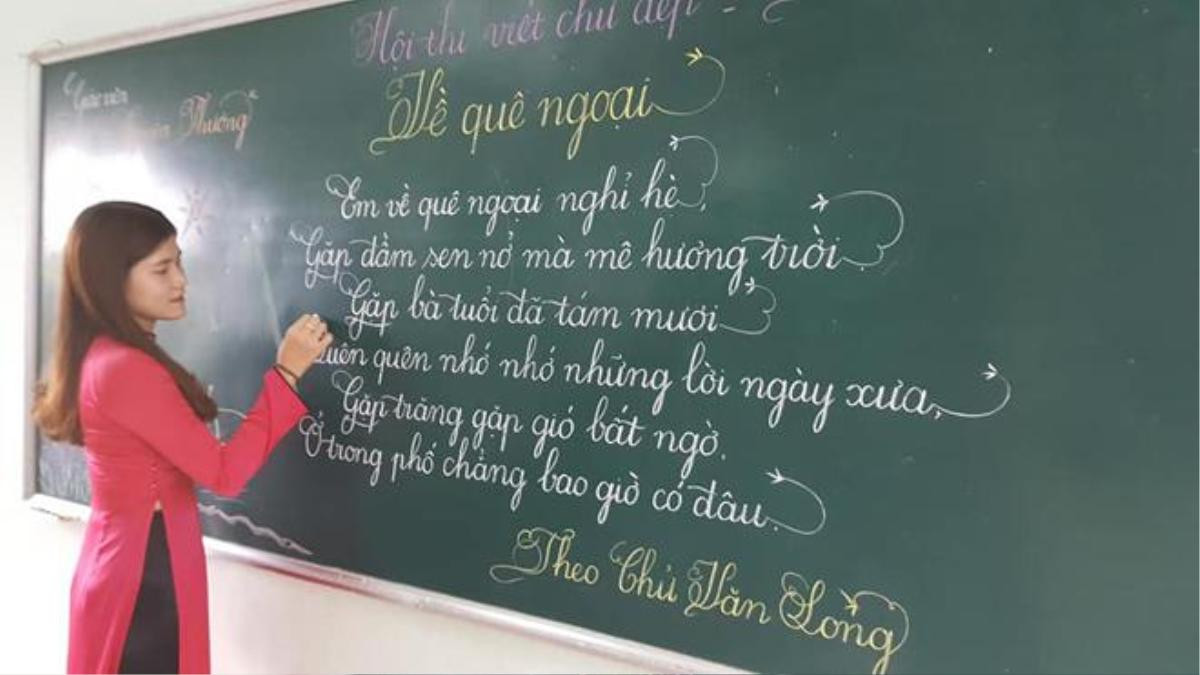 Hội thi viết chữ đẹp -
Giáo viên
Thương
Về quê ngoại
Em về quê ngoại nghỉ hè,
Gặp đầm sen nở mà mê hương trời.
Gặp bà tuổi đã tám mươi
Quên quên nhớ nhớ những lời ngày xưa,
Gặp trăng gặp gió bất ngờ.
Ở trong phố chẳng bao giờ có đâu.
Theo Chử Văn Long